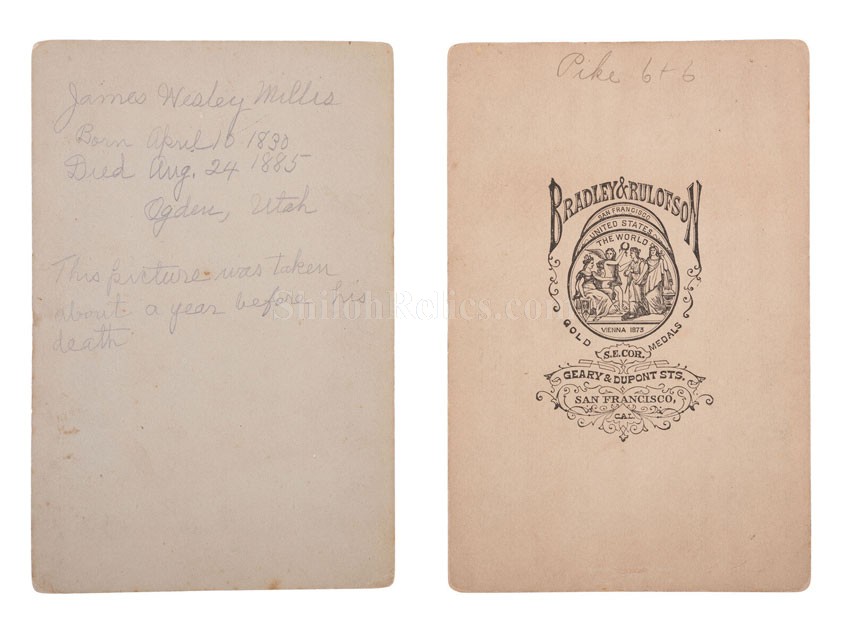 James Wesley Millis
Born April 10 1830
Died Aug. 24 1885
Ogden, Utah
This picture was taken
about a year before his
death
ShilohRelics.com
Pike 6+6
BRADLEY & RULOFSON
SAN FRANCISCO
UNITED STATES
THE WORLD
VIENNA 1873
GOLD MEDALS
S.E. COR.
GEARY & DUPONT STS.
SAN FRANCISCO,
CAL.